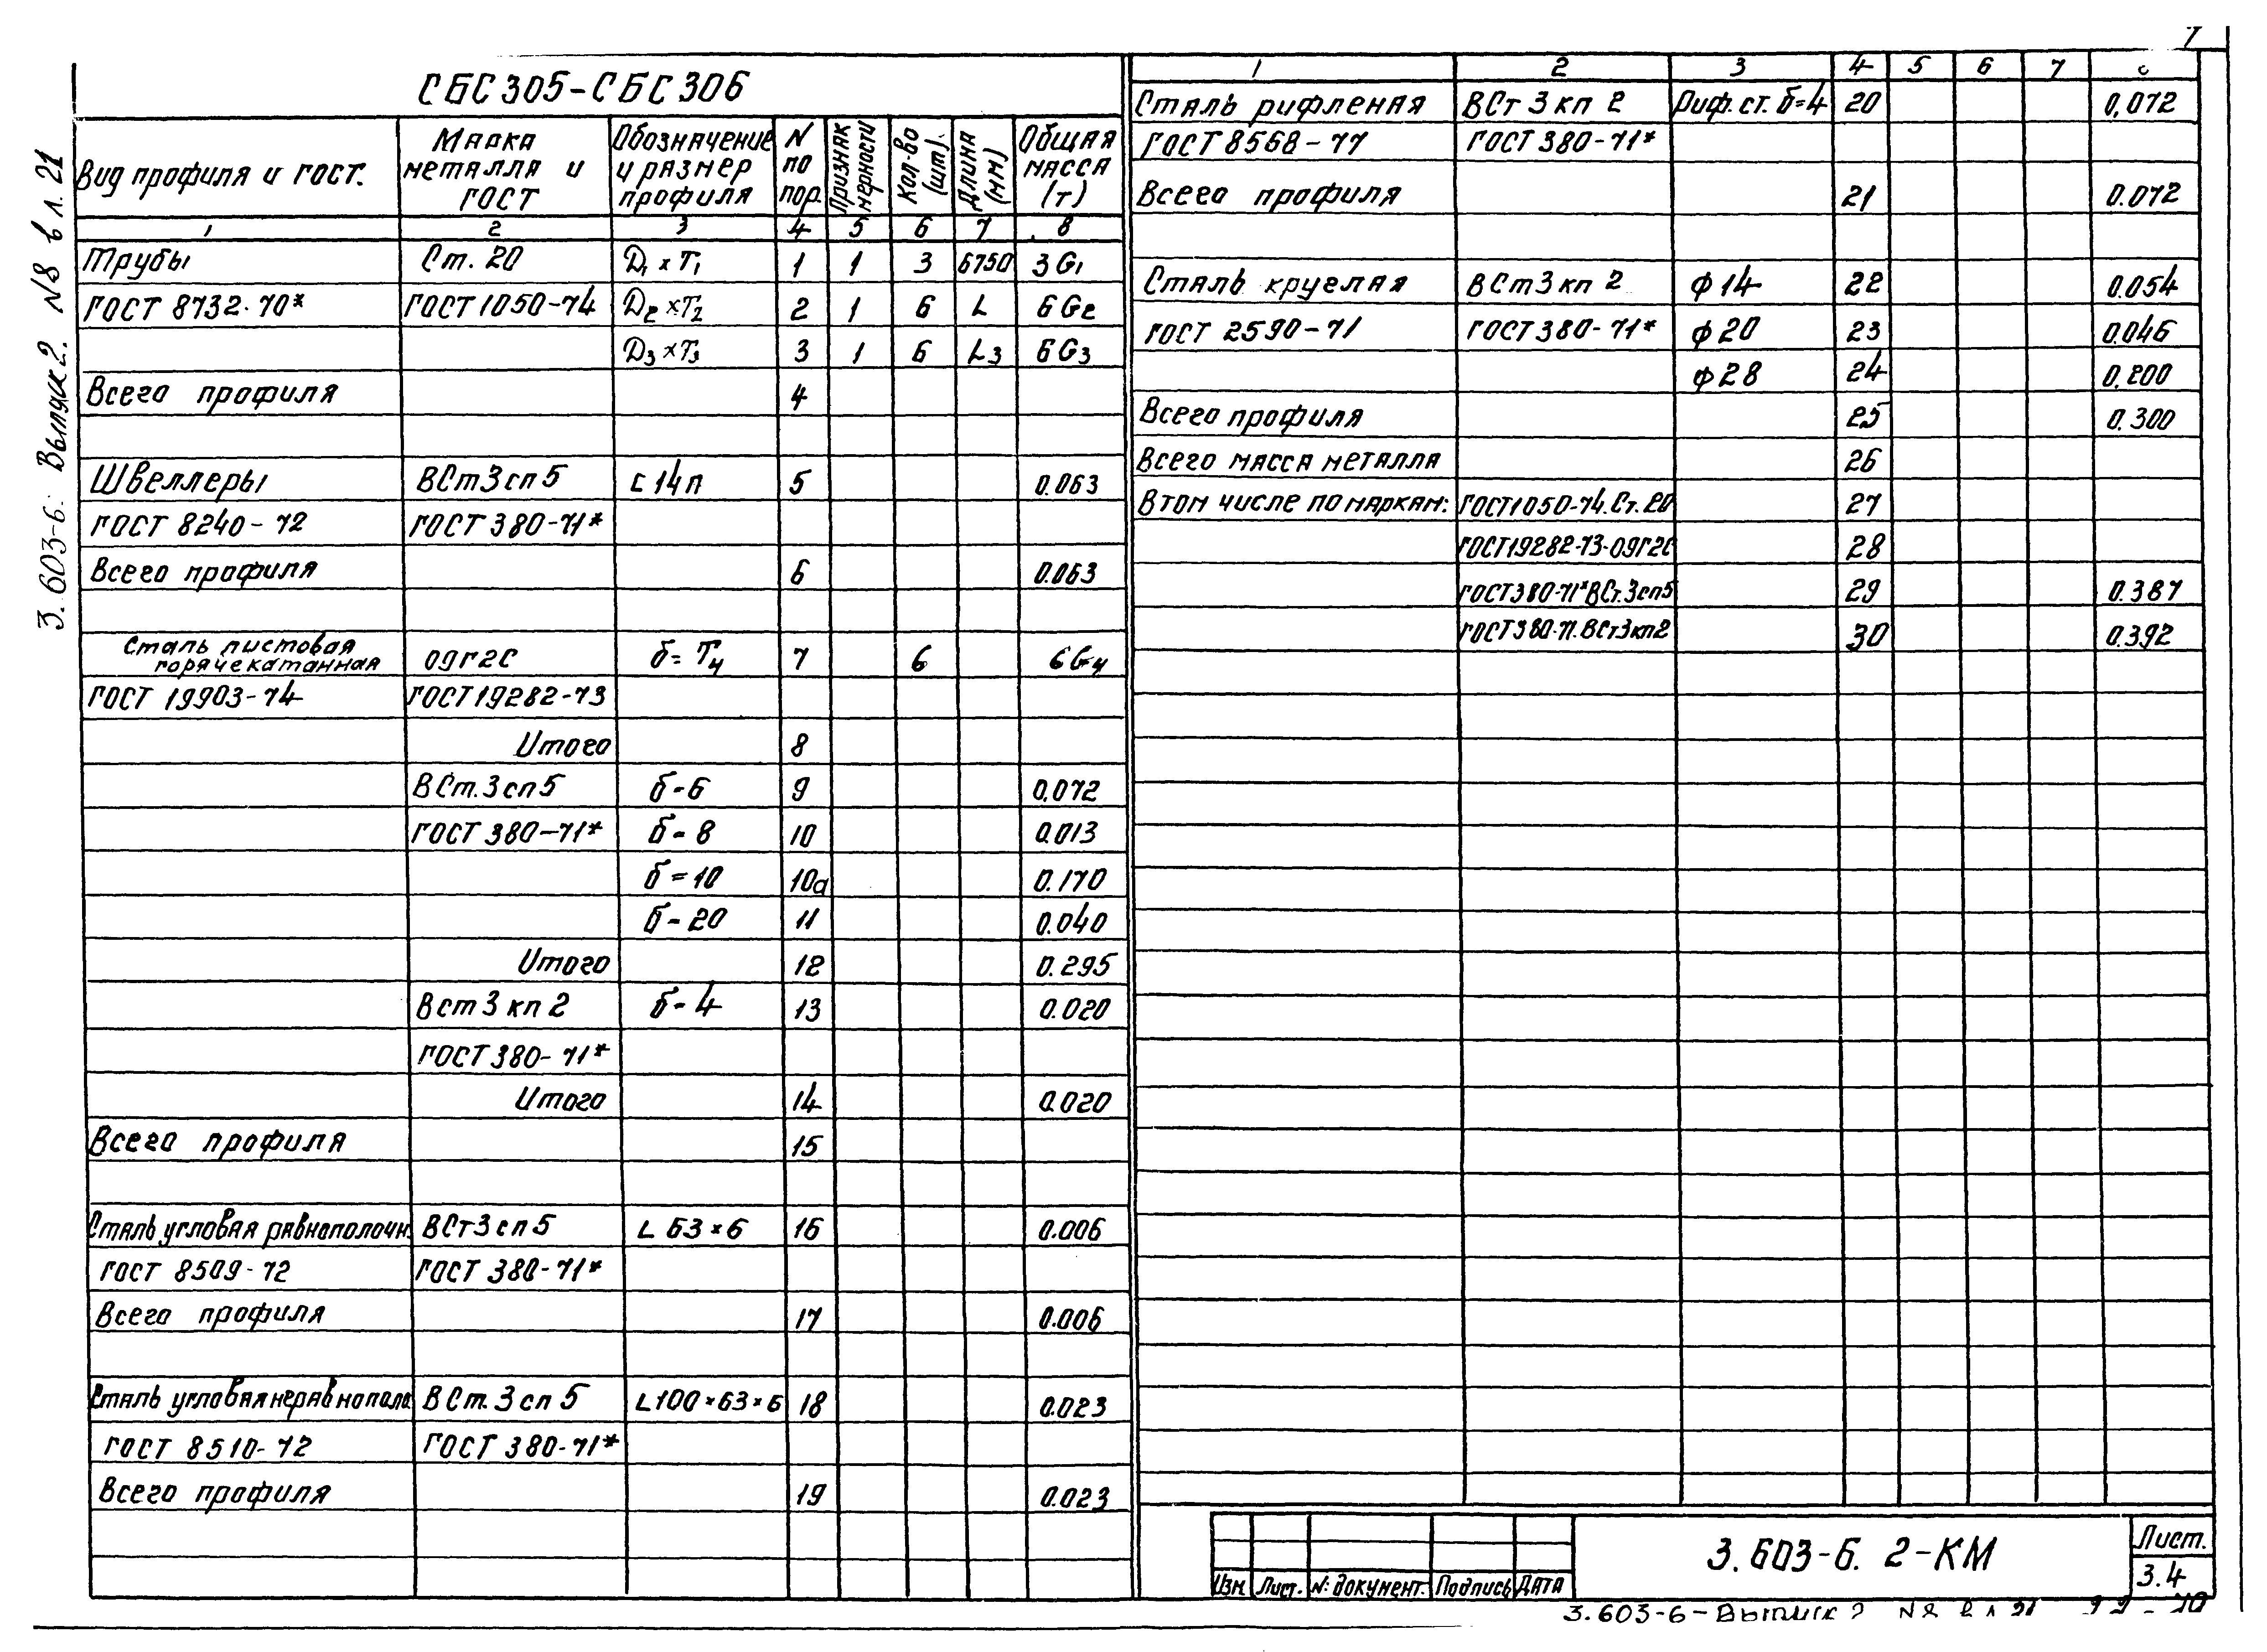 7
3.603-6. Выпуск 2. N8 в л. 21
СБС 305-СБС 306
Вид профиля и гост. Марка металла и ГОСТ Обозначение и размер профиля N по пор. Признак мерности Кол-во (шт). Длина (мм) Общая масса (т)
1 2 3 4 5 6 7 8
Трубы Ст. 20 D₁ × T₁ 1 1 3 6750 3G₁
ГОСТ 8732-70* ГОСТ 1050-74 D₂ × T₂ 2 1 6 L 6G₂
D₃ × T₃ 3 1 6 L₃ 6G₃
Всего профиля 4
Швеллеры ВСт3сп5 С 14п 5 0.063
ГОСТ 8240-72 ГОСТ 380-71*
Всего профиля 6 0.063
Сталь листовая
горячекатанная 09Г2С б=T₄ 7 6 6G₄
ГОСТ 19903-74 ГОСТ 19282-73
Итого 8
ВСт.3сп5 б-6 9 0,072
ГОСТ 380-71* б-8 10 0.013
б=10 10а 0.170
б-20 11 0.040
Итого 12 0.295
Вст3кп2 б-4 13 0.020
ГОСТ 380-71*
Итого 14 0.020
Всего профиля 15
Сталь угловая равнополочн. ВСт3сп5 L 63×6 16 0.006
ГОСТ 8509-72 ГОСТ 380-71*
Всего профиля 17 0.006
Сталь угловая неравнопол. ВСт.3сп5 L 100×63×6 18 0.023
ГОСТ 8510-72 ГОСТ 380-71*
Всего профиля 19 0.023
1 2 3 4 5 6 7
Сталь рифленая ВСт3кп2 Риф.ст. б=4 20 0,072
ГОСТ 8568-77 ГОСТ 380-71*
Всего профиля 21 0.072
Сталь круглая ВСт3кп2 ф14 22 0.054
ГОСТ 2590-71 ГОСТ 380-71* ф20 23 0.046
ф28 24 0,200
Всего профиля 25 0.300
Всего масса металла 26
В том числе по маркам: ГОСТ1050-74.Ст.20 27
ГОСТ19282-73-09Г2С 28
ГОСТ380-71*ВСт.3сп5 29 0.387
ГОСТ380-71.ВСт3кп2 30 0.392
Изм. Лист. N: документ. Подпись Дата
3.603-6. 2-КМ
Лист.
3.4
3.603-6-Выпуск 2 N8 в л 21